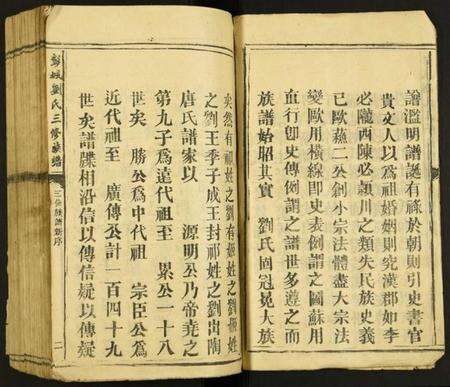 譜濫明譜誕有祿於朝則引史書官
貴文人以為祖婚姻則究漢郡如李
必隴西陳必潁川之類失民族史義
已歐蘇二公創小宗法體盡大宗法
變歐用橫線即史表例謂之圖蘇用
直行卽史傳例謂之譜世多遵之而
族譜始昭其實 劉氏固冠冕大族
矣然有祁姓之劉有姬姓之劉姬姓
之劉王季子成王封祁姓之劉出陶
唐氏譜家以 源明公乃帝堯之
第九子為遠代祖至 累公一十八
世矣 勝公為中代祖 宗臣公為
近代祖至 廣傳公計一百四十九
世矣譜牒相沿信以傳信疑以傳疑
彭城劉氏三修族譜
三修族譜新序
二